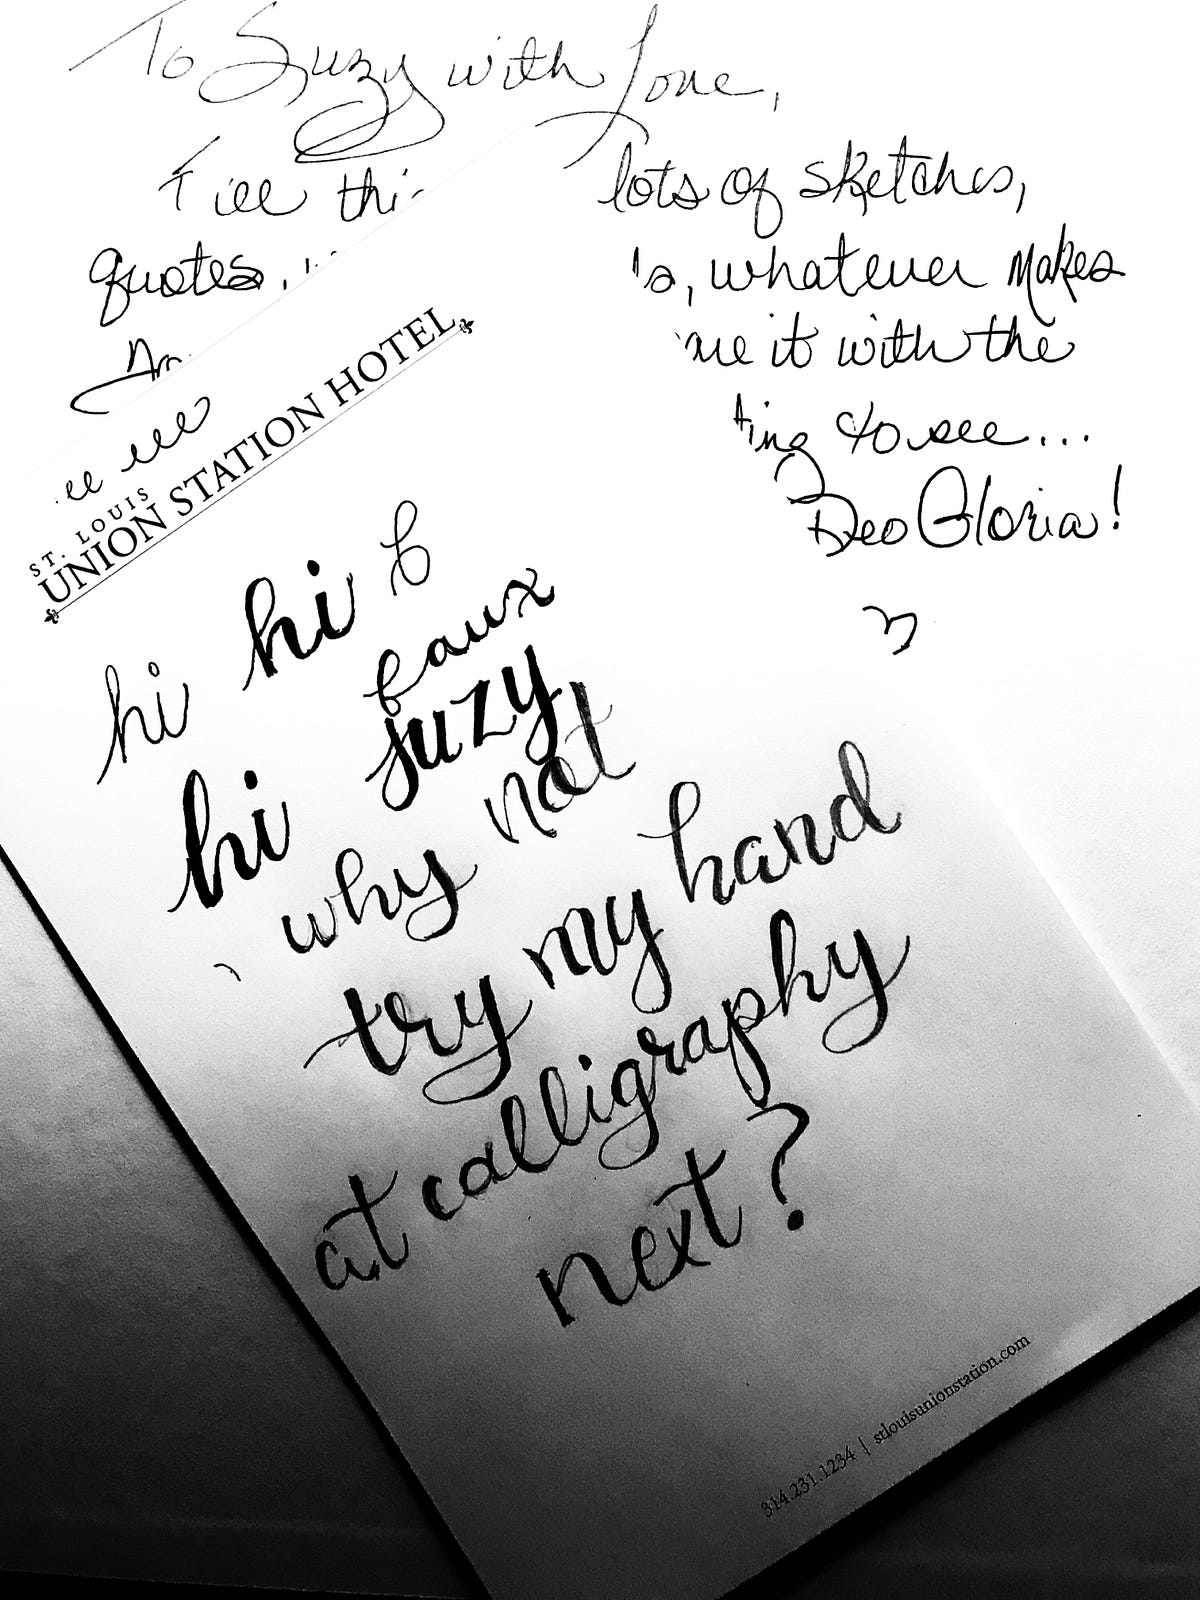 To Suzy with Love,
Fill thi lots of sketches,
quotes, whatever makes
me it with the
ting to see...
Deo Gloria!
ST. LOUIS
UNION STATION HOTEL
hi hi
faux
hi suzy
why not
try my hand
at calligraphy
next?
314.231.1234 | stlouisunionstation.com